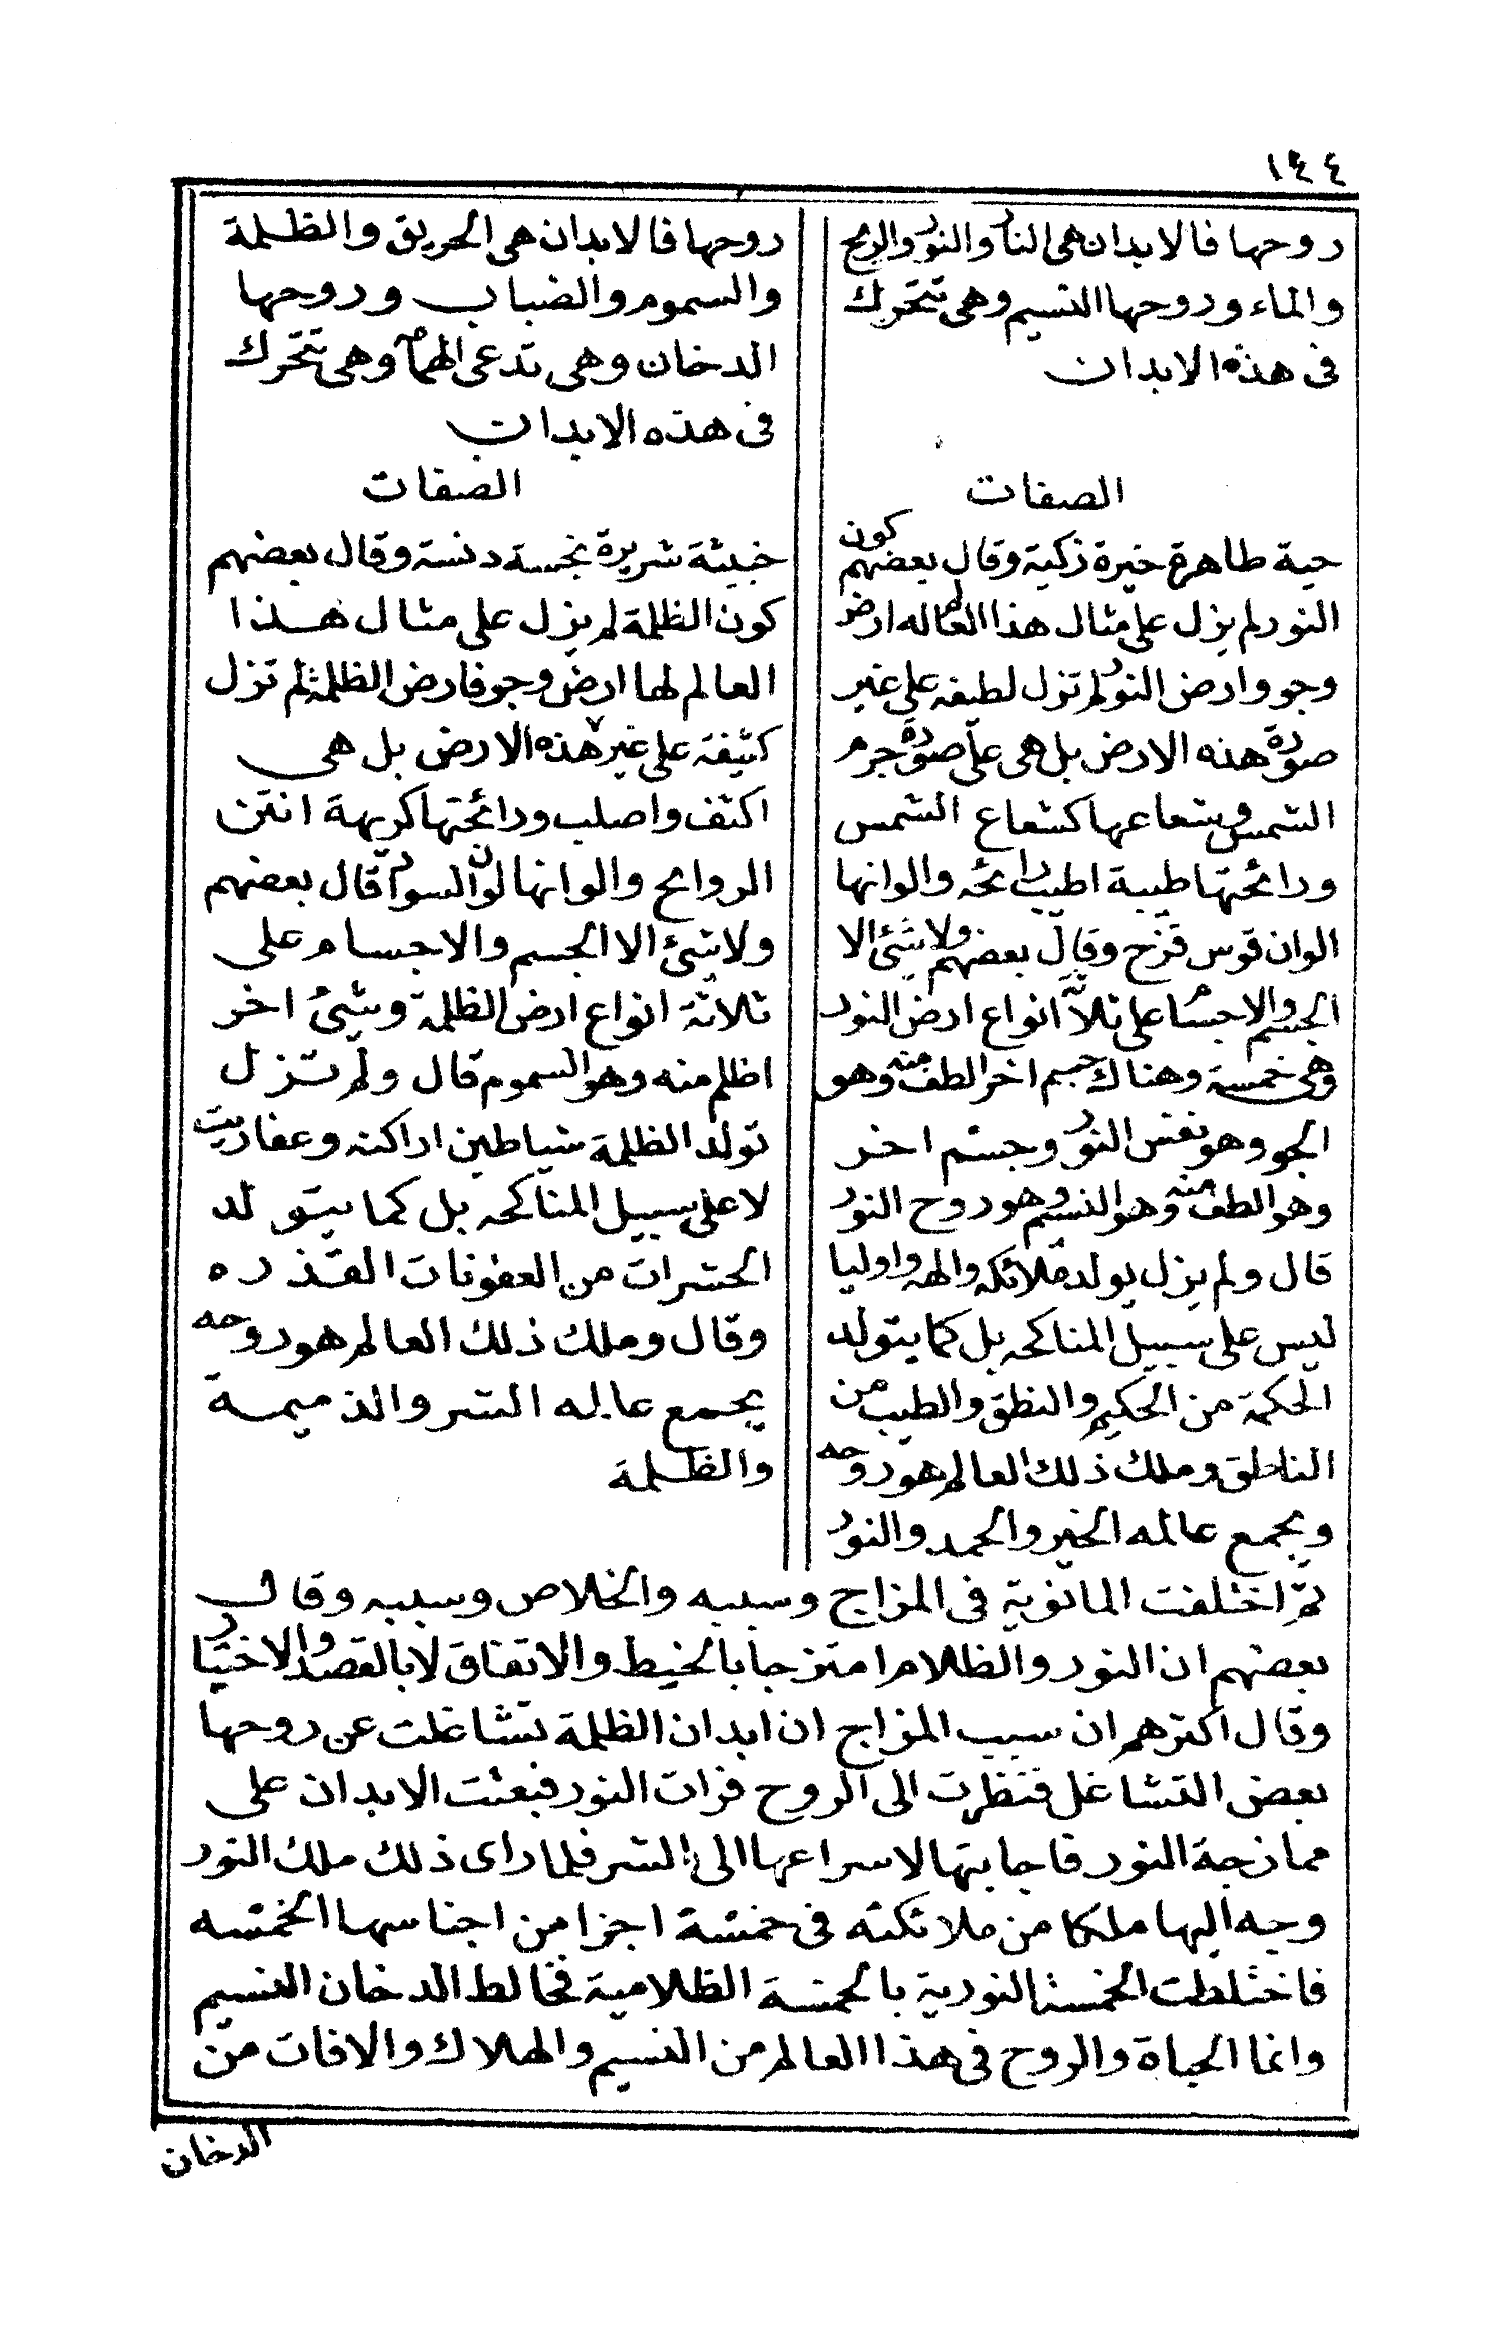 ١٤٤
روحها فالابدان هى النار والنور والريح
والماء وروحها النسيم وهى تتحرك
فى هذه الابدان
الصفات
حية طاهرة خيرة زكية وقال بعضهم كون
النور لم يزل على مثال هذا العالم له ارض
وجو وارض النور لم تزل لطيفه على غير
صورة هذه الارض بل هى على صورة جرم
الشمس وشعاعها كشعاع الشمس
ورائحتها طيبة اطيب رائحه والوانها
الوان قوس قزح وقال بعضهم ولا شئ الا
الجسم والاجسام على ثلاثة انواع ارض النور
وهى خمسة وهناك جسم اخر الطف منه وهو
الجو وهو نفس النور وجسم اخر
وهو الطف منه وهو النسيم وهو روح النور
قال ولم يزل يولد ملائكه والهه واوليا
ليس على سبيل المناكحه بل كما يتولد
الحكمة من الحكيم والنطق والطيب من
الناطق وملك ذلك العالم هو روحه
ويجمع عالمه الخير والحمد والنور
روحها فالابدان هى الحريق والظلمة
والسموم والضباب وروحها
الدخان وهى تدعى الهمامه وهى تتحرك
فى هذه الابدان
الصفات
خبيثة شريرة نجسة دنسة وقال بعضهم
كون الظلمة لم يزل على مثال هذا
العالم لها ارض وجو فارض الظلمة لم تزل
كثيفة على غير هذه الارض بل هى
اكثف واصلب ورائحتها كريهة انتن
الروايح والوانها لون السواد قال بعضهم
ولا شئ الا الجسم والاجسام على
ثلاثة انواع ارض الظلمة وشئ اخر
اظلم منه وهو السموم قال ولم تزل
تولد الظلمة شياطين اراكنه وعفاريت
لا على سبيل المناكحه بل كما يتولد
الحشرات من العفونات القذره
وقال وملك ذلك العالم هو روحه
يجمع عالمه الشر والذميمة
والظلمة
ثم اختلفت المانوية فى المزاج وسببه والخلاص وسببه وقال
بعضهم ان النور والظلام امتزجا بالخبط والاتفاق لا بالقصد والاختيار
وقال اكثرهم ان سبب المزاج ان ابدان الظلمة تشاغلت عن روحها
بعض التشاغل فنظرت الى الروح فرات النور فبعثت الابدان على
ممازجة النور فاجابتها لاسراعها الى الشر فلما راى ذلك ملك النور
وجه اليها ملكا من ملائكته فى خمسة اجزا من اجناسها الخمسه
فاختلطت الخمسة النورية بالخمسة الظلامية فخالط الدخان النسيم
وانما الحياة والروح فى هذا العالم من النسيم والهلاك والافات من
الدخان